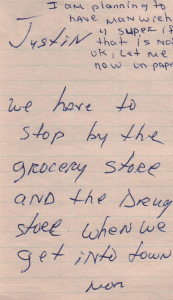 I am planning to
have manwich
Justin
super if
that is not
ok, let me
now on paper
we have to
stop by the
grocery store
AND the Drug
store when we
get into town
Mom